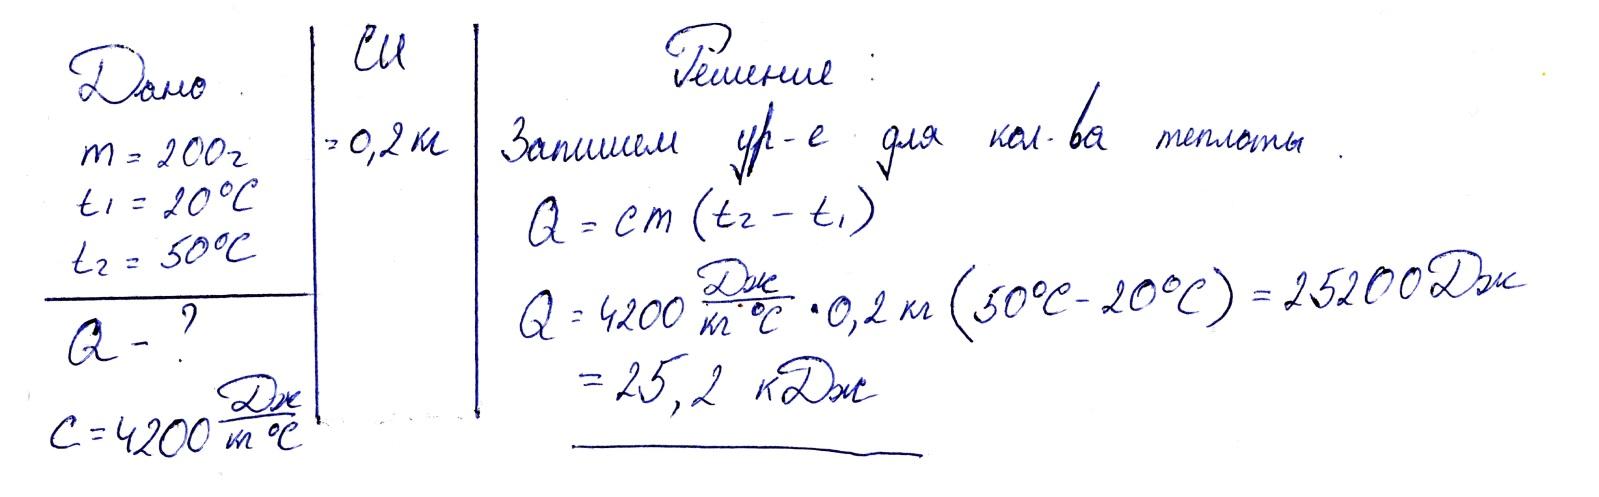 Дано
m = 200г
t₁ = 20°C
t₂ = 50°C
Q - ?
C = 4200 Дж/кг °C
СИ
= 0,2 кг
Решение :
Запишем ур-е для кол-ва теплоты.
Q = cm (t₂ - t₁)
Q = 4200 Дж/кг·°C · 0,2 кг (50°C - 20°C) = 25200 Дж
= 25,2 кДж